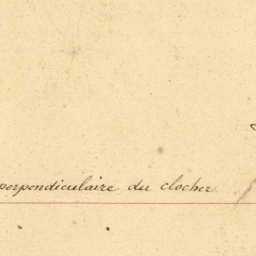 perpendiculaire du clocher